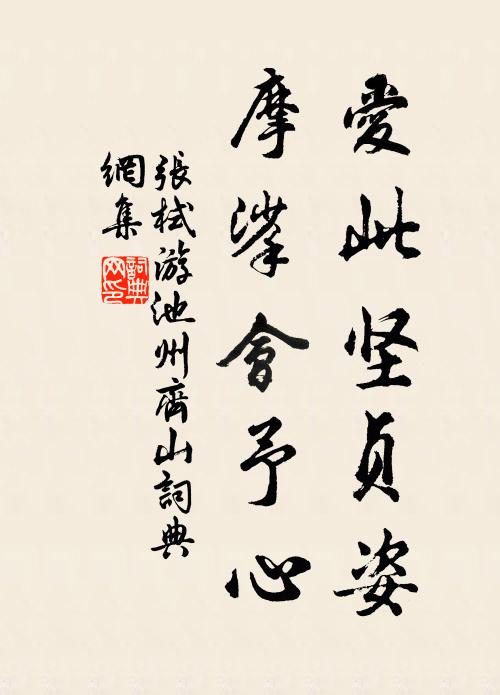 愛此坚貞姿
摩挲會予心
張栻游池州齊山詞典
網集
詞典
网印